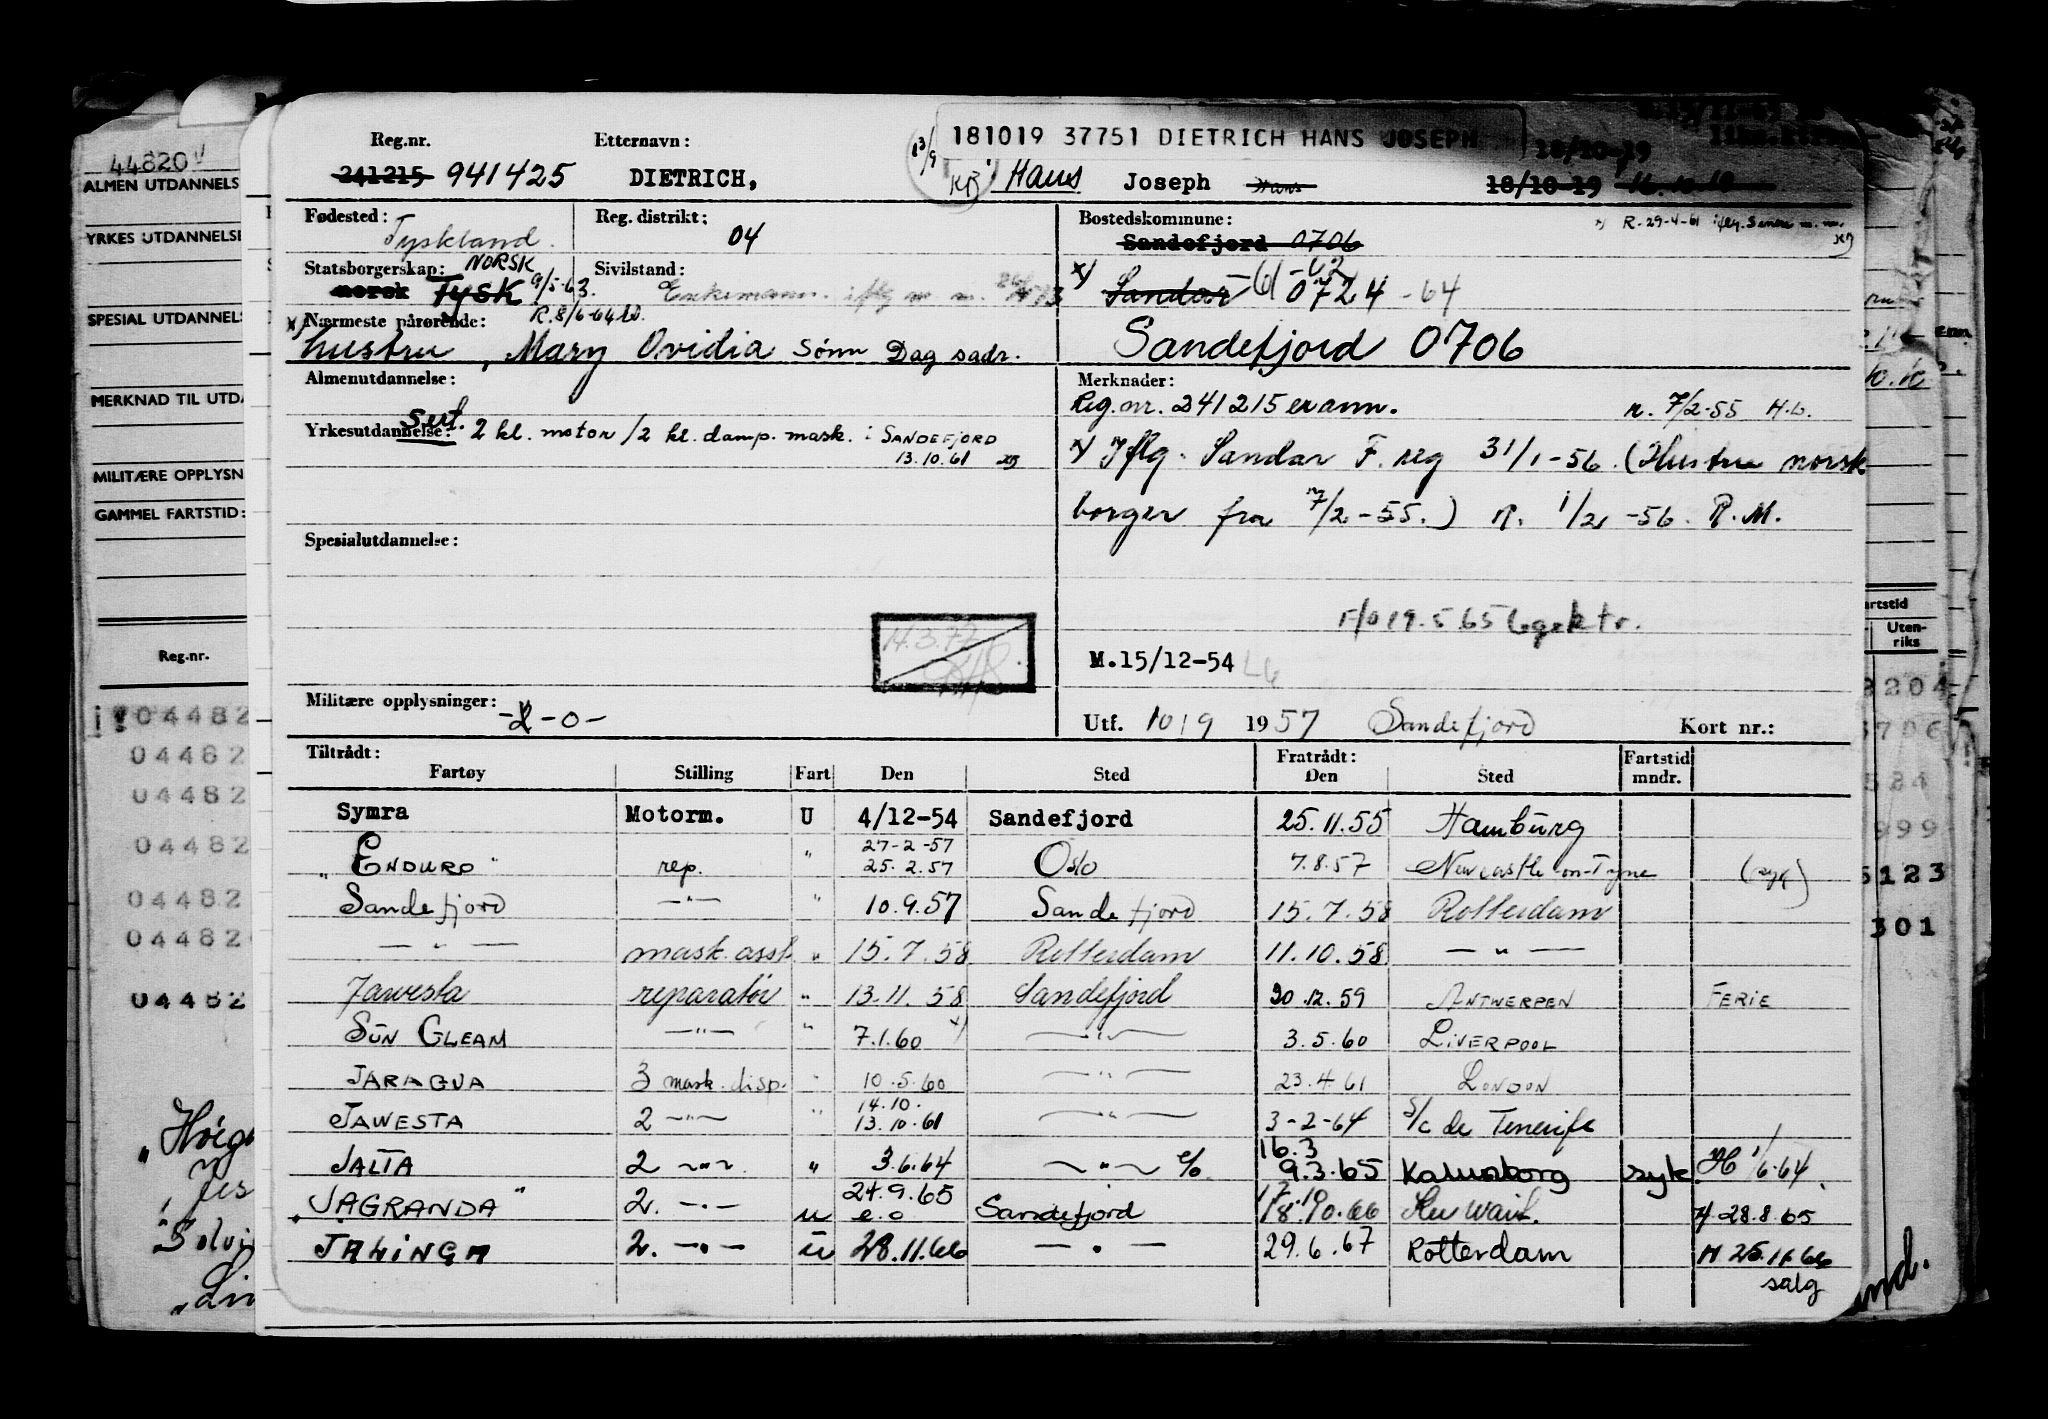 44820
ALMEN UTDANNELS
YRKES UTDANNELSE
SPESIAL UTDANNELS
MERKNAD TIL UTDA
MILITÆRE OPPLYSN
GAMMEL FARTSTID:
Reg.nr.
04482
04482
04482
04482
04482
04482
04482
Reg.nr. Etternavn: 13/9 181019 37751 DIETRICH HANS JOSEPH 18/10-19
241215 941425 DIETRICH, KB Hans Joseph Hans 18/10-19 16.10.19
Fødested: Tyskland Reg. distrikt: 04 Bostedskommune: R. 29-4-61
Sandefjord 0706
Statsborgerskap: NORSK Sivilstand:
norsk TYSK 9/5-63. Enkemann. iflg m m. x) Sandar 61-62 0724 -64
Nærmeste pårørende: R. 8/6-64
hustru, Mary Ovidia Sønn Dag sadr. Sandefjord 0706
Almenutdannelse: Merknader:
Reg.nr. 241215 er ann. r. 7/2-55 H.L.
Yrkesutdannelse: Sert. 2 kl. motor/2 kl. damp. mask. i SANDEFJORD
13.10.61
x) Iflg. Sandar F. reg 31/1-56. (Hustru norsk
borger fra 7/2-55.) R. 1/2-56. R.M.
Spesialutdannelse:
14.3.72
F/o 19.5.65
M.15/12-54
Militære opplysninger: -0- Utf. 10/9 1957 Sandefjord Kort nr.:
Tiltrådt: Fratrådt: Fartstid
Fartøy Stilling Fart Den Sted Den Sted mndr.
Symra Motorm. U 4/12-54 Sandefjord 25.11.55 Hamburg
27-2-57
"ENDURO" rep. " 25.2.57 Oslo 7.8.57 Newcastle-on-Tyne (syk)
Sandefjord -"- " 10.9.57 Sandefjord 15.7.58 Rotterdam
-"- mask. asst. " 15.7.58 Rotterdam 11.10.58 -"-
Jawesta reparatør " 13.11.58 Sandefjord 30.12.59 ANTWERPEN FERIE
SUN GLEAM -"- " 7.1.60 x) -"- 3.5.60 LIVERPOOL
JARAGUA 3 mask. disp. " 10.5.60 -"- 23.4.61 LONDON
14.10.
JAWESTA 2 -"- " 13.10.61 -"- 3-2-64 S/C de Tenerife
16.3
JALTA 2 -"- " 3.6.64 -"- e/o 9.3.65 Kalundborg syk. H 1/6-64.
24.9.65 17.10
"JAGRANDA" 2. -"- u e.o Sandefjord 18.10.66 Kuwait. H 28.8.65
JALINGA 2. -"- u 28.11.66 -"- 29.6.67 Rotterdam H 25.11.66
salg
artstid
Uten-
riks
8204
999
5123
301